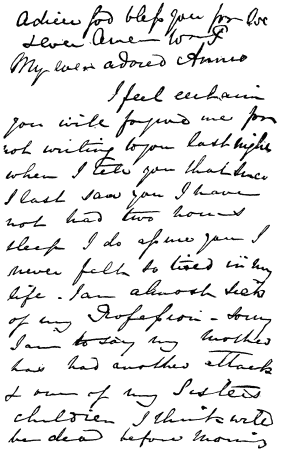 adieu God bless you for I've
never
My ever adored Annie
I feel certain
you will forgive me for
not writing to you last night
when I tell you that since
I last saw you I have
not had two hours
sleep I do assure you I
never felt so tired in my
life - I am almost sick
of my Profession - sorry
I am to say my mother
has had another attack
& one of my Sisters
children I think will
be dead before morning